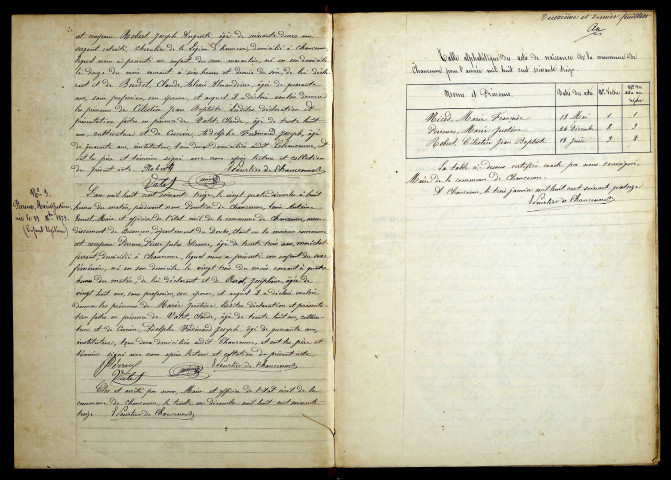 et compare Robert Joseph Auguste, âgé de soixante douze ans
sergent retraité, chevalier de la légion d'honneur, domicilié à Chaucenne,
lequel nous a présenté un enfant du sexe masculin, né en son domicile
le douze du mois courant à six heures et demie du soir, de lui décla-
rant et de Claude, âgée de quarante
ans, sans profession, son épouse, et auquel il a déclaré vouloir donner
les prénoms de Célestin Jean Baptiste. Lesdites déclaration et
présentation faites en présence de Vatot, Claude, âgé de trente huit
ans, cultivateur et de Cussin, Adolphe Ferdinand Joseph, âgé
de quarante ans, instituteur, tous deux domiciliés audit Chaucenne, et
ont les père et témoins signé avec nous après lecture et collation
du présent acte. Robert
Vatot Courlier de Chaucenne
N° 3.
Marie Justine
née le 23 Xbre 1873.
(Enfant légitime)
L'an mil huit cent soixante treize, le vingt quatre décembre à huit
heures du matin, pardevant nous Courlier de Chaucenne, Louis Antoine
Ernest, Maire et officier de l'état civil de la commune de Chaucenne, arron-
dissement de Besançon, département du Doubs, étant en la maison commune
est comparu Pierre Jules Etienne, âgé de trente trois ans, maréchal
ferrant, domicilié à Chaucenne, lequel nous a présenté un enfant du sexe
féminin, né en son domicile le vingt trois du mois courant à quatre
heures du matin, de lui déclarant et de Joséphine, âgée de
vingt huit ans, sans profession, son épouse, et auquel il a déclaré vouloir
donner les prénoms de Marie Justine. Lesdites déclaration et présenta-
tion faites en présence de Vatot, Claude, âgé de trente huit ans, cultiva-
teur et de Cussin, Adolphe Ferdinand Joseph, âgé de quarante ans,
instituteur, tous deux domiciliés audit Chaucenne, et ont les père et
témoins signé avec nous après lecture et collation du présent acte.
Vatot Courlier de Chaucenne
Clos et arrêté par nous, Maire et officier de l'état civil de la
commune de Chaucenne, le trente un décembre mil huit cent soixante
treize Courlier de Chaucenne
Deuxième et dernier feuillet
Table alphabétique des actes de naissance de la commune de
Chaucenne pour l'année mil huit cent soixante treize.
Noms et Prénoms Date des actes N° d'ordre
Marie Françoise 18 Mai 1 1
Marie Justine 24 Décembre 3 2
Robert, Célestin Jean Baptiste 13 Juin 2 2
La table ci-dessus certifiée exacte par nous soussigné,
Maire de la commune de Chaucenne.
A Chaucenne, le trois janvier mil huit cent soixante quatorze
Courlier de Chaucenne